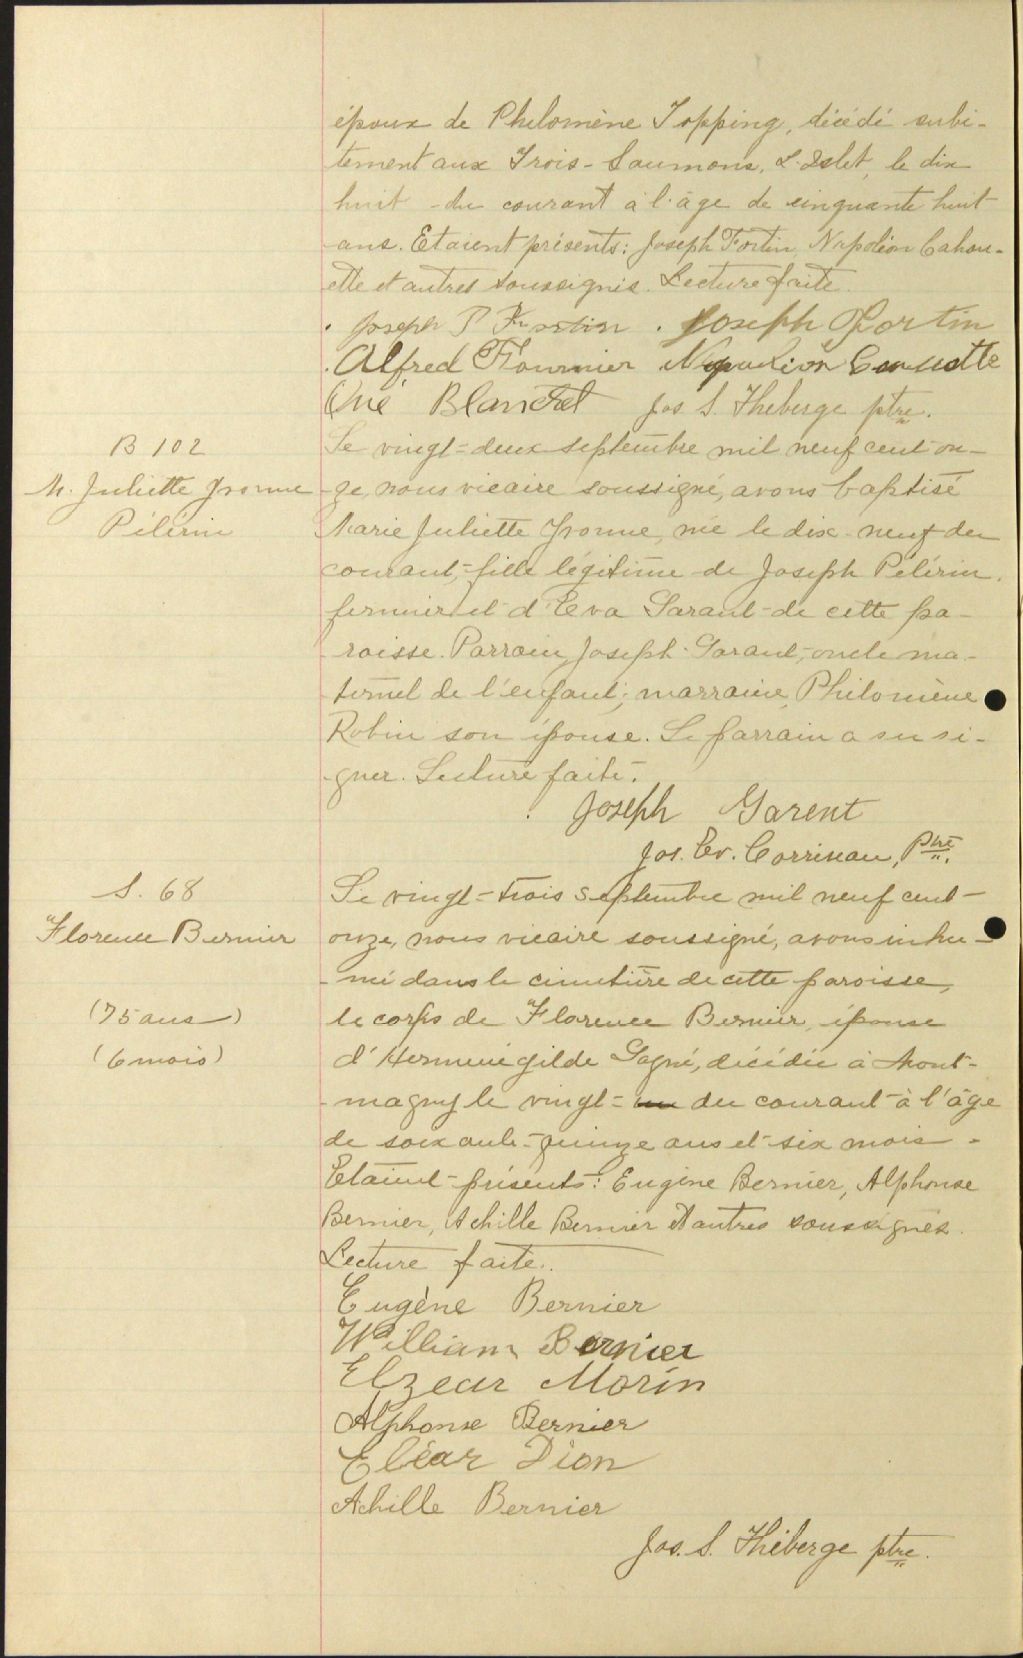 époux de Philomène Topping, décédé subi-
tement aux Trois-Saumons, L'Islet, le dix
huit du courant à l'âge de cinquante huit
ans. Etaient présents: Joseph Fortin, Napoléon Cahou-
ette et autres soussignés. Lecture faite.
Joseph P Fortin . Joseph Fortin
Alfred Fournier Napoléon
Blanchet Jos. S. Théberge ptre.
B 102
M. Juliette Yvonne
Pélérin
Le vingt-deux septembre mil neuf cent on-
ze, nous vicaire soussigné, avons baptisé
Marie Juliette Yvonne, née le dix-neuf du
courant, fille légitime de Joseph Pélérin,
fermier et d'Eva Garant de cette pa-
roisse. Parrain Joseph Garant, oncle ma-
ternel de l'enfant; marraine Philomène
Robin son épouse. Le parrain a su si-
gner. Lecture faite.
Joseph Garent
Jos. Ev. Corriveau, Ptre.
S. 68
Florence Bernier
(75 ans)
(6 mois)
Le vingt-trois septembre mil neuf cent-
onze, nous vicaire soussigné, avons inhu-
mé dans le cimetière de cette paroisse,
le corps de Florence Bernier, épouse
d'Herménégilde Gagné, décédée à Mont-
magny le vingt- du courant à l'âge
de soixante-quinze ans et six mois.
Etaient présents: Eugène Bernier, Alphonse
Bernier, Achille Bernier et autres soussignés.
Lecture faite.
Eugène Bernier
William Bernier
Elzear Morin
Alphonse Bernier
Eléar Dion
Achille Bernier
Jos. S. Théberge ptre.